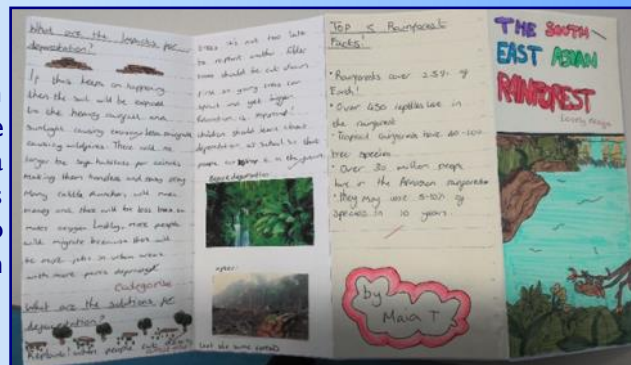 What are the impacts for
deforestation?
If this keeps on happening
then the soil will be exposed
to the heavy rainfall and
sunlight causing
causing wildfires. There will no
longer be safe habitats for animals
making them homeless and
Many cattle ranchers will make
money and there will be less trees to
make oxygen. Lastly, more people
will migrate because there will
be more jobs in urban areas
with more parts deprived.
Categorise
What are the solutions for
deforestation?
Replant! When people cut down
trees it's not too late
to replant another. Older
trees should be cut down
first so young trees can
sprout and get bigger.
Education is important!
Children should learn about
deforestation at school so that
people can stop it in the future.
Before deforestation
after:
TOP 5 Rainforest
Facts!
• Rainforests cover 2.5% of
Earth!
• Over 450 reptiles live in
the rainforest
• Tropical rainforests have 40-100
tree species
• Over 30 million people
live in the Amazon rainforest
• They may lose 5-10% of
species in 10 years.
by
Maia T
THE SOUTH-
EAST ASIAN
RAINFOREST